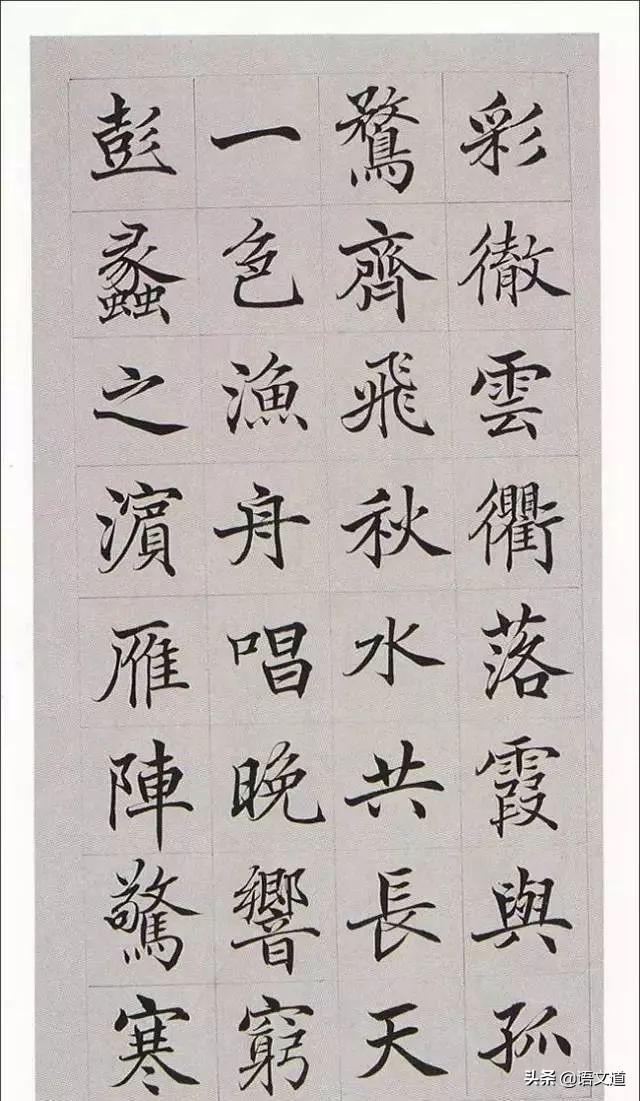 彩徹雲衢落霞與孤
鶩齊飛秋水共長天
一色漁舟唱晚響窮
彭蠡之濱雁陣驚寒
头条 @语文道